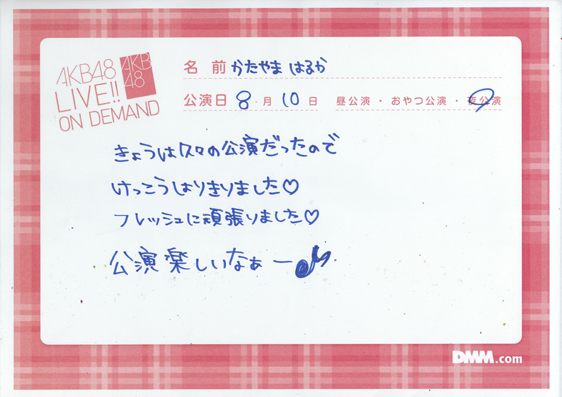 AKB48
LIVE!!
ON DEMAND
AKB
48
名 前 かたやま はるか
公演日 8 月 10 日 昼公演・おやつ公演・夜公演
きょうは久々の公演だったので
けっこうはりきりました♡
フレッシュに頑張りました♡
公演楽しいなぁー♪
DMM.com